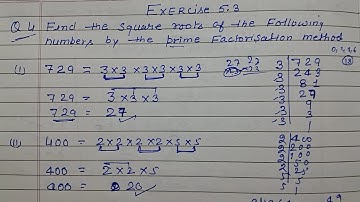 EXERCISE 5.3
Q 4 Find the square roots of the following
numbers by the prime Factorisation method
(i) 729 = 3×3 × 3×3 × 3×3
729 = 3×3×3
729 = 27
3 | 729
3 | 243
3 | 81
3 | 27
3 | 9
3 | 3
1
(ii) 400 = 2×2 × 2×2 × 5×5
400 = 2×2×5
400 = 20
2 | 400
2 | 200
2 | 100
2 | 50
5 | 25
5 | 5
1